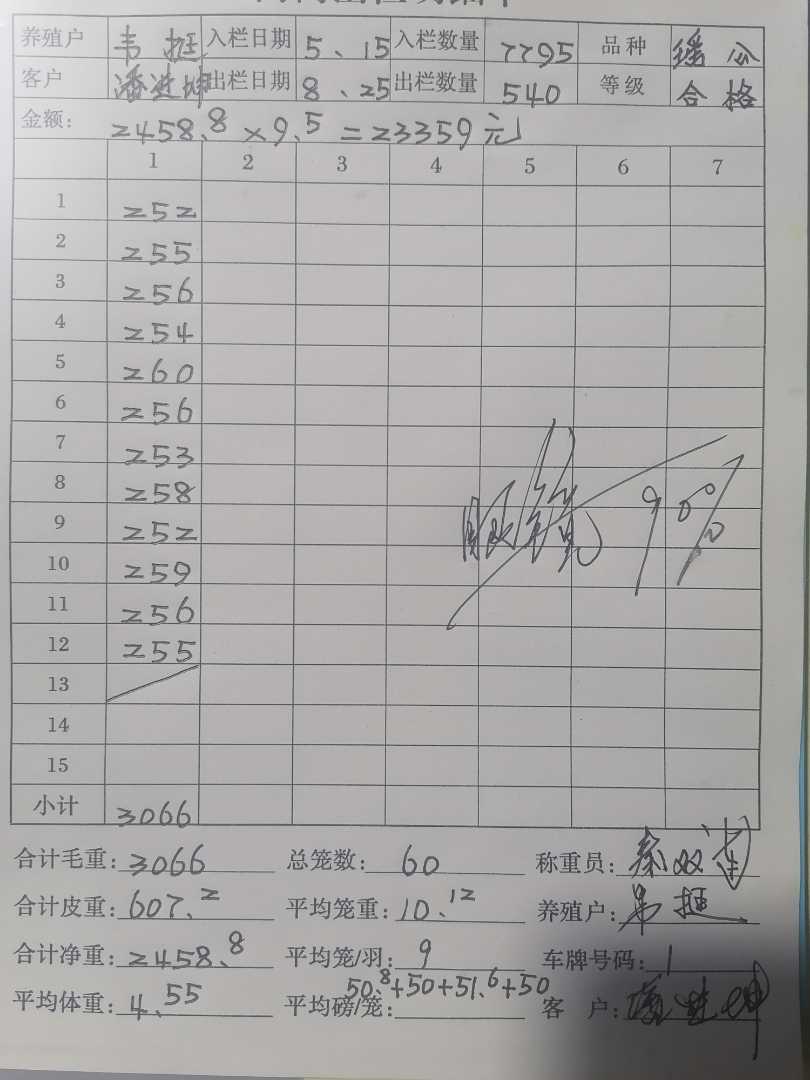 养殖户 韦挺 入栏日期 5、15 入栏数量 7795 品种 瑶公
客户 潘进坤 出栏日期 8、25 出栏数量 540 等级 合格
金额: 2458.8 × 9.5 = 23359元
1 2 3 4 5 6 7
1 252
2 255
3 256
4 254
5 260
6 256
7 253
8 258
9 252
10 259
11 256
12 255
13
14
15
小计 3066
合计毛重: 3066 总笼数: 60 称重员:
合计皮重: 607.2 平均笼重: 10.12 养殖户: 韦挺
合计净重: 2458.8 平均笼/羽: 9 车牌号码: 1
平均体重: 4.55 平均磅/笼: 50.8+50+51.6+50 客 户: 潘进坤